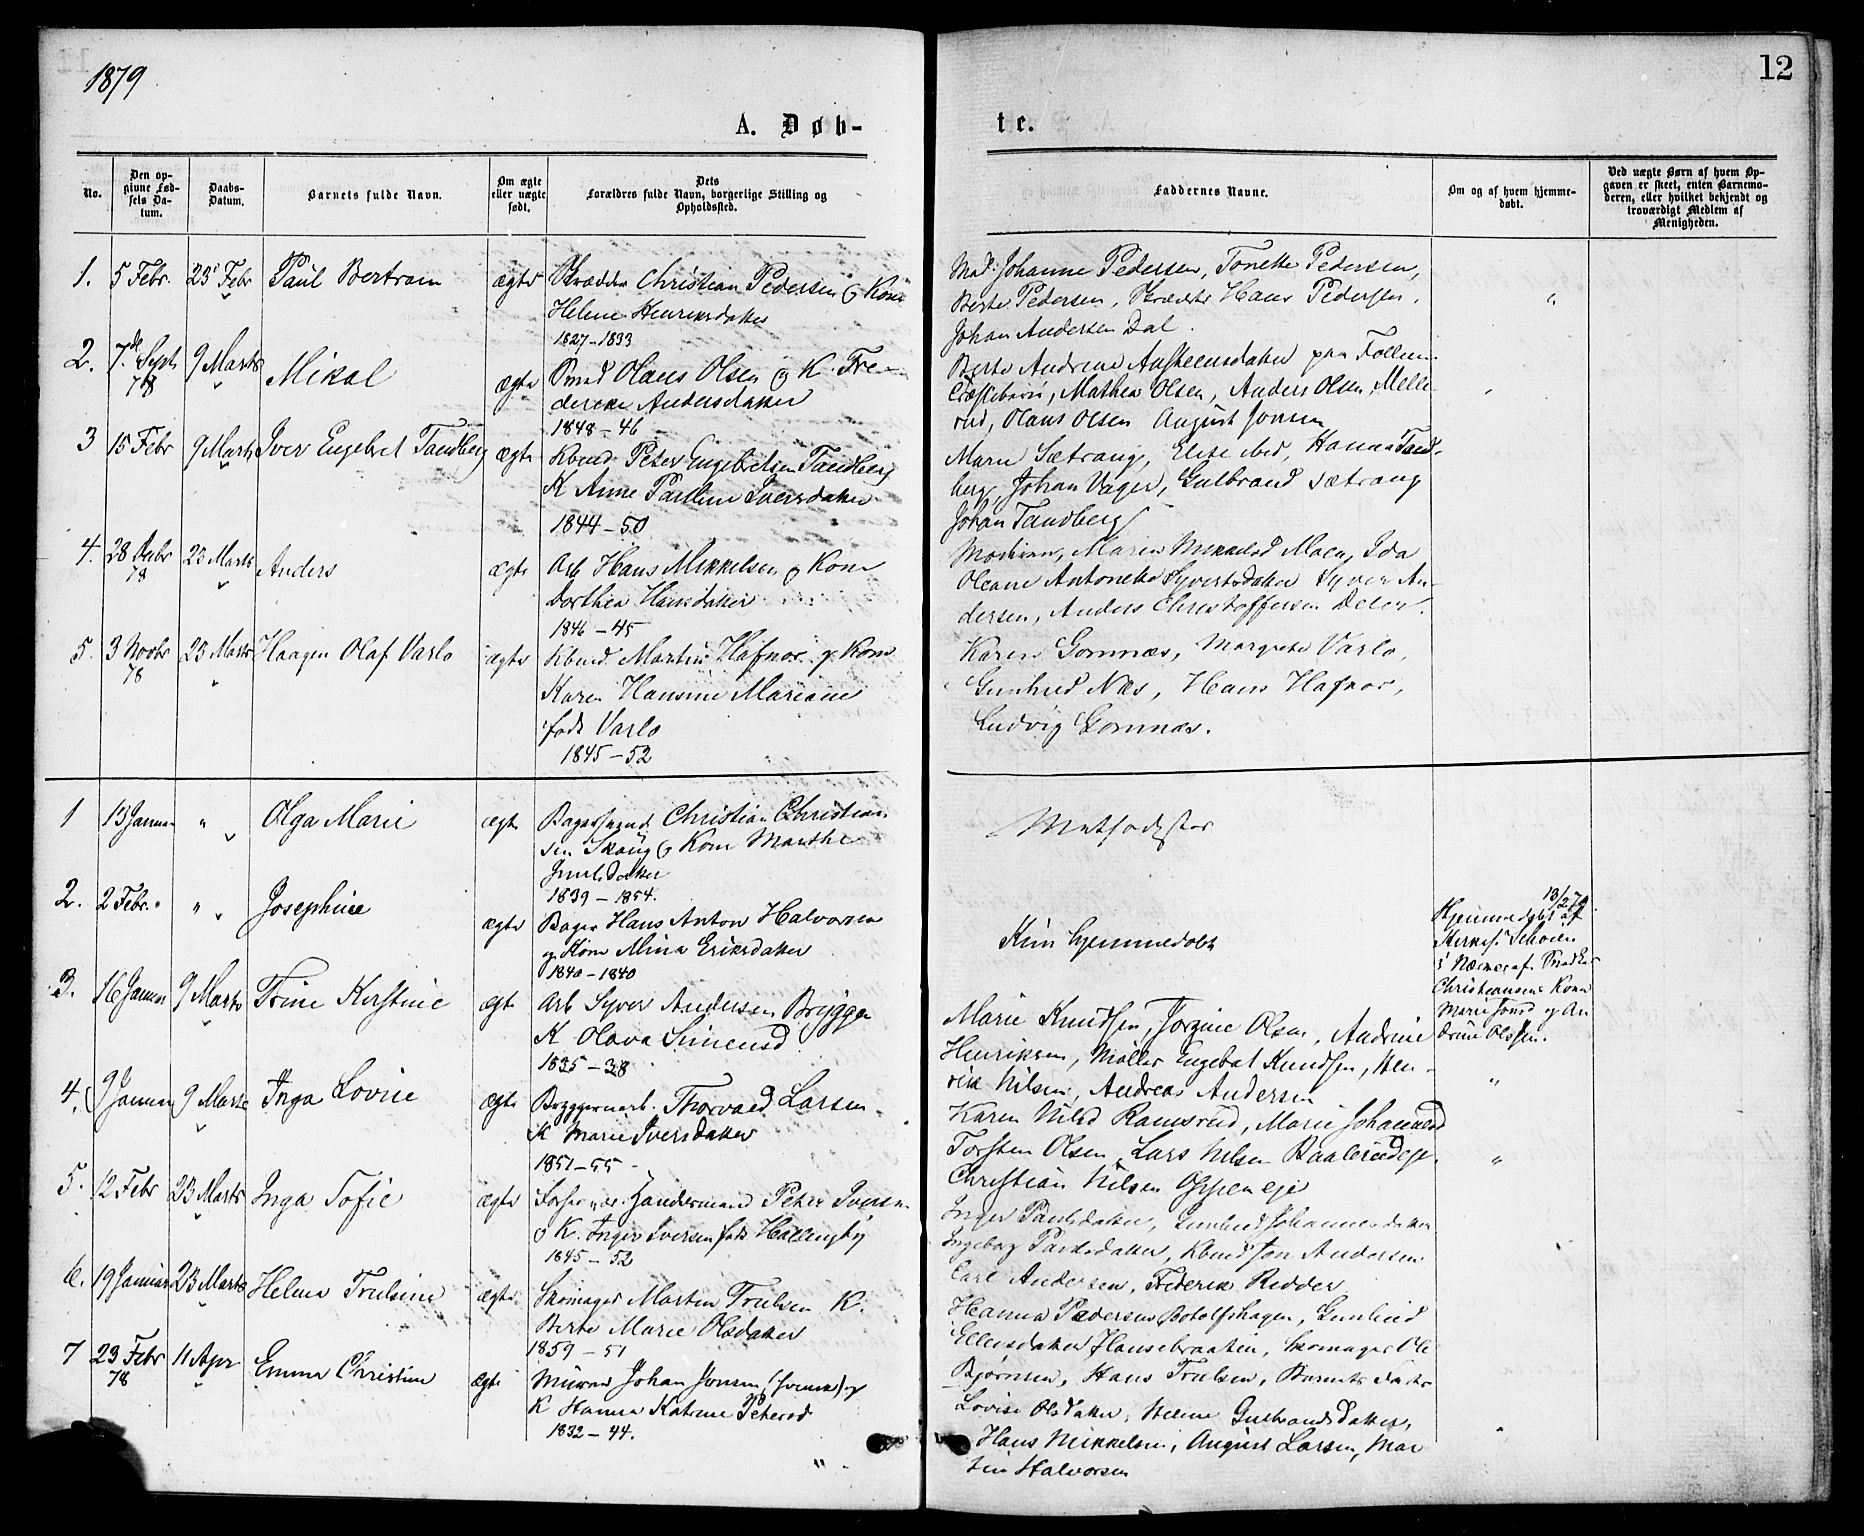 1879
12
A. Døb-
te.
No.
Den op-
givne Fød-
sels Da-
tum.
Daabs-
Datum.
Barnets fulde Navn.
Om ægte
eller uægte
født.
Dets
Forældres fulde Navn, borgerlige Stilling og
Opholdssted.
Faddernes Navne.
Om og af hvem hjemme-
døbt.
Ved uægte Børn af hvem Op-
gaven er skeet, enten Barnemo-
deren, eller hvilket bekjendt og
troværdigt Medlem af
Menigheden.
1. 5 Febr. 23 Febr Paul Bertram ægte Skrædder Christian Pedersen & Kone
Helene Henriksdatter
1827-1833
Mad. Johanne Pedersen, Tonette Pedersen,
Berte Pedersen, Skrædder Hans Pedersen,
Johan Andersen Dal.
"
2. 7de Sept 9 Marts Mikal ægte Smed Olaus Olsen & K. Fre-
78
dereke Andersdatter
1848-46
Berte Andrine Anskeensdatter paa Follum
Træsliberi, Mathea Olsen, Anders Olsen Melle
rud, Olaus Olsen August Jonsen
3 15 Febr 9 Marts Iver Engebret Tandberg ægte Kbmd Peter Engebretsen Tandberg
K Anne Pauline Iversdatter
1844-50
Marie Sætrang, Elise ibid, Hanna Tand-
berg, Johan Vager, Gulbrand Sætrang
Johan Tandberg
4. 28 Decbr 23 Marts Anders ægte Arb Hans Mikkelsen & Kone
78
Dorthea Hansdatter
1846-45
Moderen, Maren Mikkelsd Moen, Ida
Oleane Antonette Syvertsdatter Syver An-
dersen, Anders Christoffersen Delen.
5. 3 Novbr 23 Marts Haagen Olaf Varlo ægte Kbmd. Martin Hafnor & Kone
78
Karen Hansine Mariane
født Varlo
1845-52
Karen Gomnæs, Margrete Varlo,
Gunhild Næs, Hans Hafnor,
Ludvig Gomnæs.
1 13 Januar " Olga Marie ægte Bagersvend Christian Christian-
sen Skoug & Kone Marthe
Juulsdatter
1839-1854.
Methodister
2. 2 Febr. " Josephine ægte Bager Hans Anton Halvorsen
& Kone Mina Eriksdatter
1840-1840
Kun hjemmedøbt
13/2 79.
Hjemmedøbt af
Kirkes. Schøien
i Nærv. af Snedker
Christiansens Kone
Marie Jonsd og An
drine Olsen.
3. 16 Januar 9 Marts Trine Kirstine ægte Arb Syver Andersen Brygge
K Olava Simensd
1835-38
Marie Knudsen, Jorgine Olsen, Andrine
Henriksen, Møller Engebret Knudsen, Hen-
rik Nilsen, Andreas Andersen
"
4. 9 Januar 9 Marts Inga Lovise ægte Bryggeriarb. Thorvald Larsen
K Marie Iversdatter
1851-55
Karen Nilsd Ramsrud, Marie Johannesd
Torsten Olsen, Lars Nilsen Baalerudeje.
Christian Nilsen Oppeneje
"
5. 12 Febr 23 Marts Inga Sofie ægte Handelsmand Peter Iversen
& K. Inger Iversen født Hallingby
1845-52
Inger Paulsdatter, Gunhild Johannesdatter
Ingeborg Paulsdatter, Kbmd Jon Andersen
Carl Andersen, Frederik Ridder
6. 19 Januar 23 Marts Helma Trulsine ægte Skomager Martin Trulsen K.
Berte Marie Olsdatter
1859-51
Hanna Pedersen Botolfshagen, Gunhild
Ellensdatter Hansebraaten, Skomager Ole
Bjørnsen, Hans Trulsen, Barnets Fader
7 23 Febr 11 Apr Emma Christine ægte Murer Johan Jonsen (svensk) &
78
K Hanna Katrine Petersd
1832-44.
Lovise Olsdatter, Helene Gulbrandsdatter,
Hans Mikkelsen, August Larsen, Mar
tin Halvorsen
"